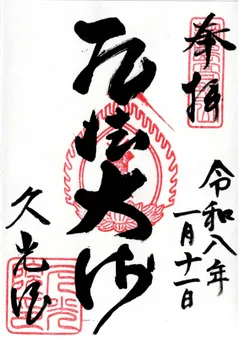 奉拝
令和八年
一月十一日
弘法大師
久光院